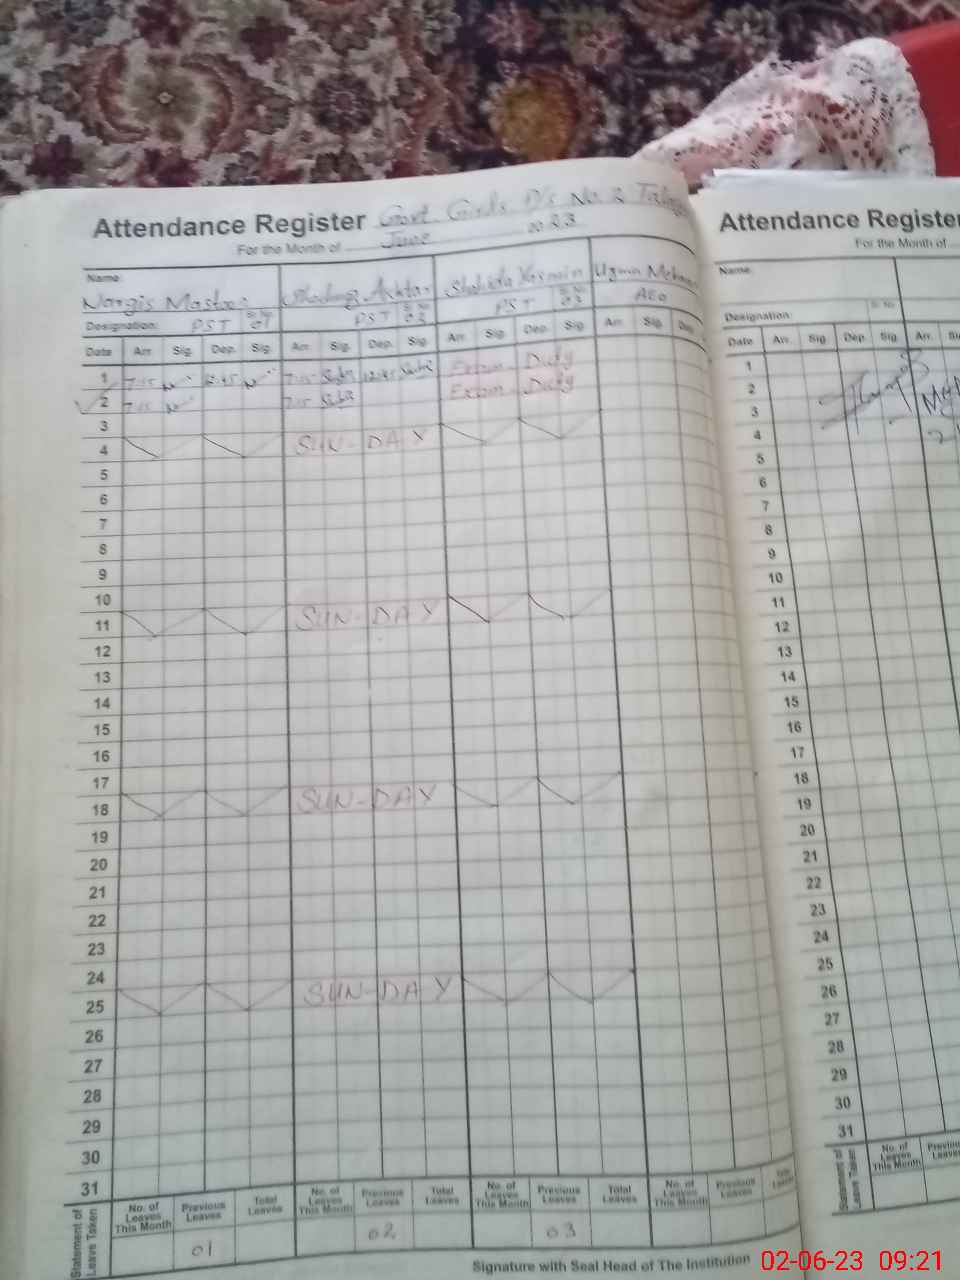 Attendance Register Govt Girls P/s No. 2
For the Month of June 2023
Name
Nargis
Shahida Yasmin
Uzma
Designation: PST S. No 01
PST S. No 02
PST S. No 03
AEO
Date Arr. Sig. Dep. Sig. Arr. Sig. Dep. Sig. Arr. Sig. Dep. Sig. Arr. Sig. Dep.
1 7:15 12:45 7:15 12:45 Exam Duty
2 7:15 7:15 Exam Duty
3
4 SUN-DAY
5
6
7
8
9
10
11 SUN-DAY
12
13
14
15
16
17
18 SUN-DAY
19
20
21
22
23
24
25 SUN-DAY
26
27
28
29
30
31
Statement of Leave Taken
No. of Leaves This Month Previous Leaves Total Leaves No. of Leaves This Month Previous Leaves Total Leaves No. of Leaves This Month Previous Leaves Total Leaves No. of Leaves This Month Previous Leaves
01 02 03
Signature with Seal Head of The Institution
Attendance Register
For the Month of
Name
Designation: S. No
Date Arr. Sig. Dep. Sig. Arr.
1
2
3
4
5
6
7
8
9
10
11
12
13
14
15
16
17
18
19
20
21
22
23
24
25
26
27
28
29
30
31
Statement of Leave Taken
No. of Leaves This Month
02-06-23 09:21